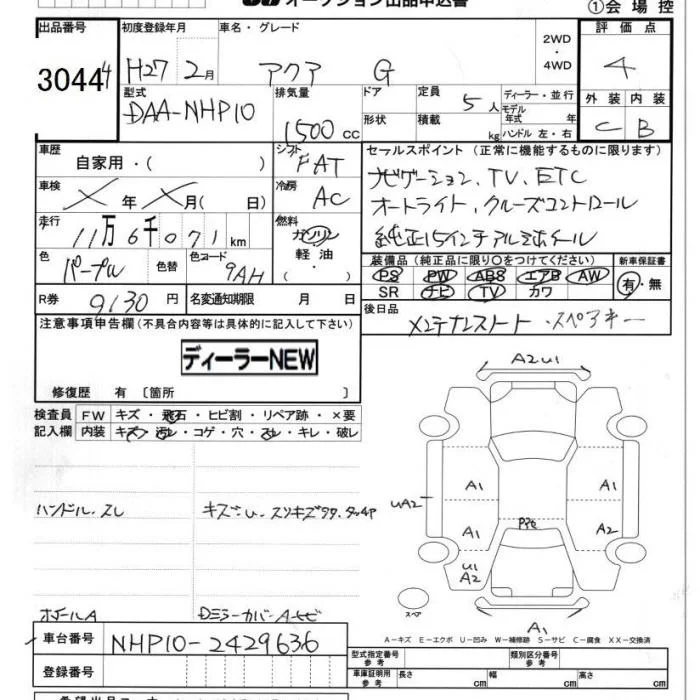 オークション出品申込書
①会場控
出品番号 初度登録年月 車名・グレード 2WD・4WD 評価点
30444 H27 2月 アクア G 4
型式 排気量 ドア 定員 5人 ディーラー・並行 外装 内装
DAA-NHP10 1500cc 形状 積載 kg モデル年式 年 ハンドル 左・右 C B
車歴 自家用・( ) シフト FAT セールスポイント (正常に機能するものに限ります)
車検 ×年×月( 日) 冷房 AC ナビゲーション、TV、ETC
走行 11万6千071km 燃料 ガソリン 軽油・ オートライト、クルーズコントロール
色 パープル 色替 色コード 9AH 純正15インチアルミホイール
装備品 (純正品に限り○をつけてください) 新車保証書
PS PW ABS エアB AW 有・無
SR ナビ TV カワ
R券 9130円 名変通知期限 月 日
後日品 メンテナンスノート・スペアキー
注意事項申告欄 (不具合内容等は具体的に記入して下さい)
ディーラーNEW
修復歴 有 〔箇所 〕
検査員記入欄 FW キズ・飛石・ヒビ割・リペア跡・×要
内装 キズ・汚レ・コゲ・穴・スレ・キレ・破レ
A2U1
A1 A1
UA2
A1 A2
U1
A2
スペア
A1
ハンドル.スレ
ホイールA
A-キズ E-エクボ U-凹み W-補修跡 S-サビ C-腐食 XX-交換済
車台番号 NHP10-2429636
登録番号
型式指定番号 参考 類別区分番号 参考
車庫証明用 参考 長さ cm 幅 cm 高さ cm